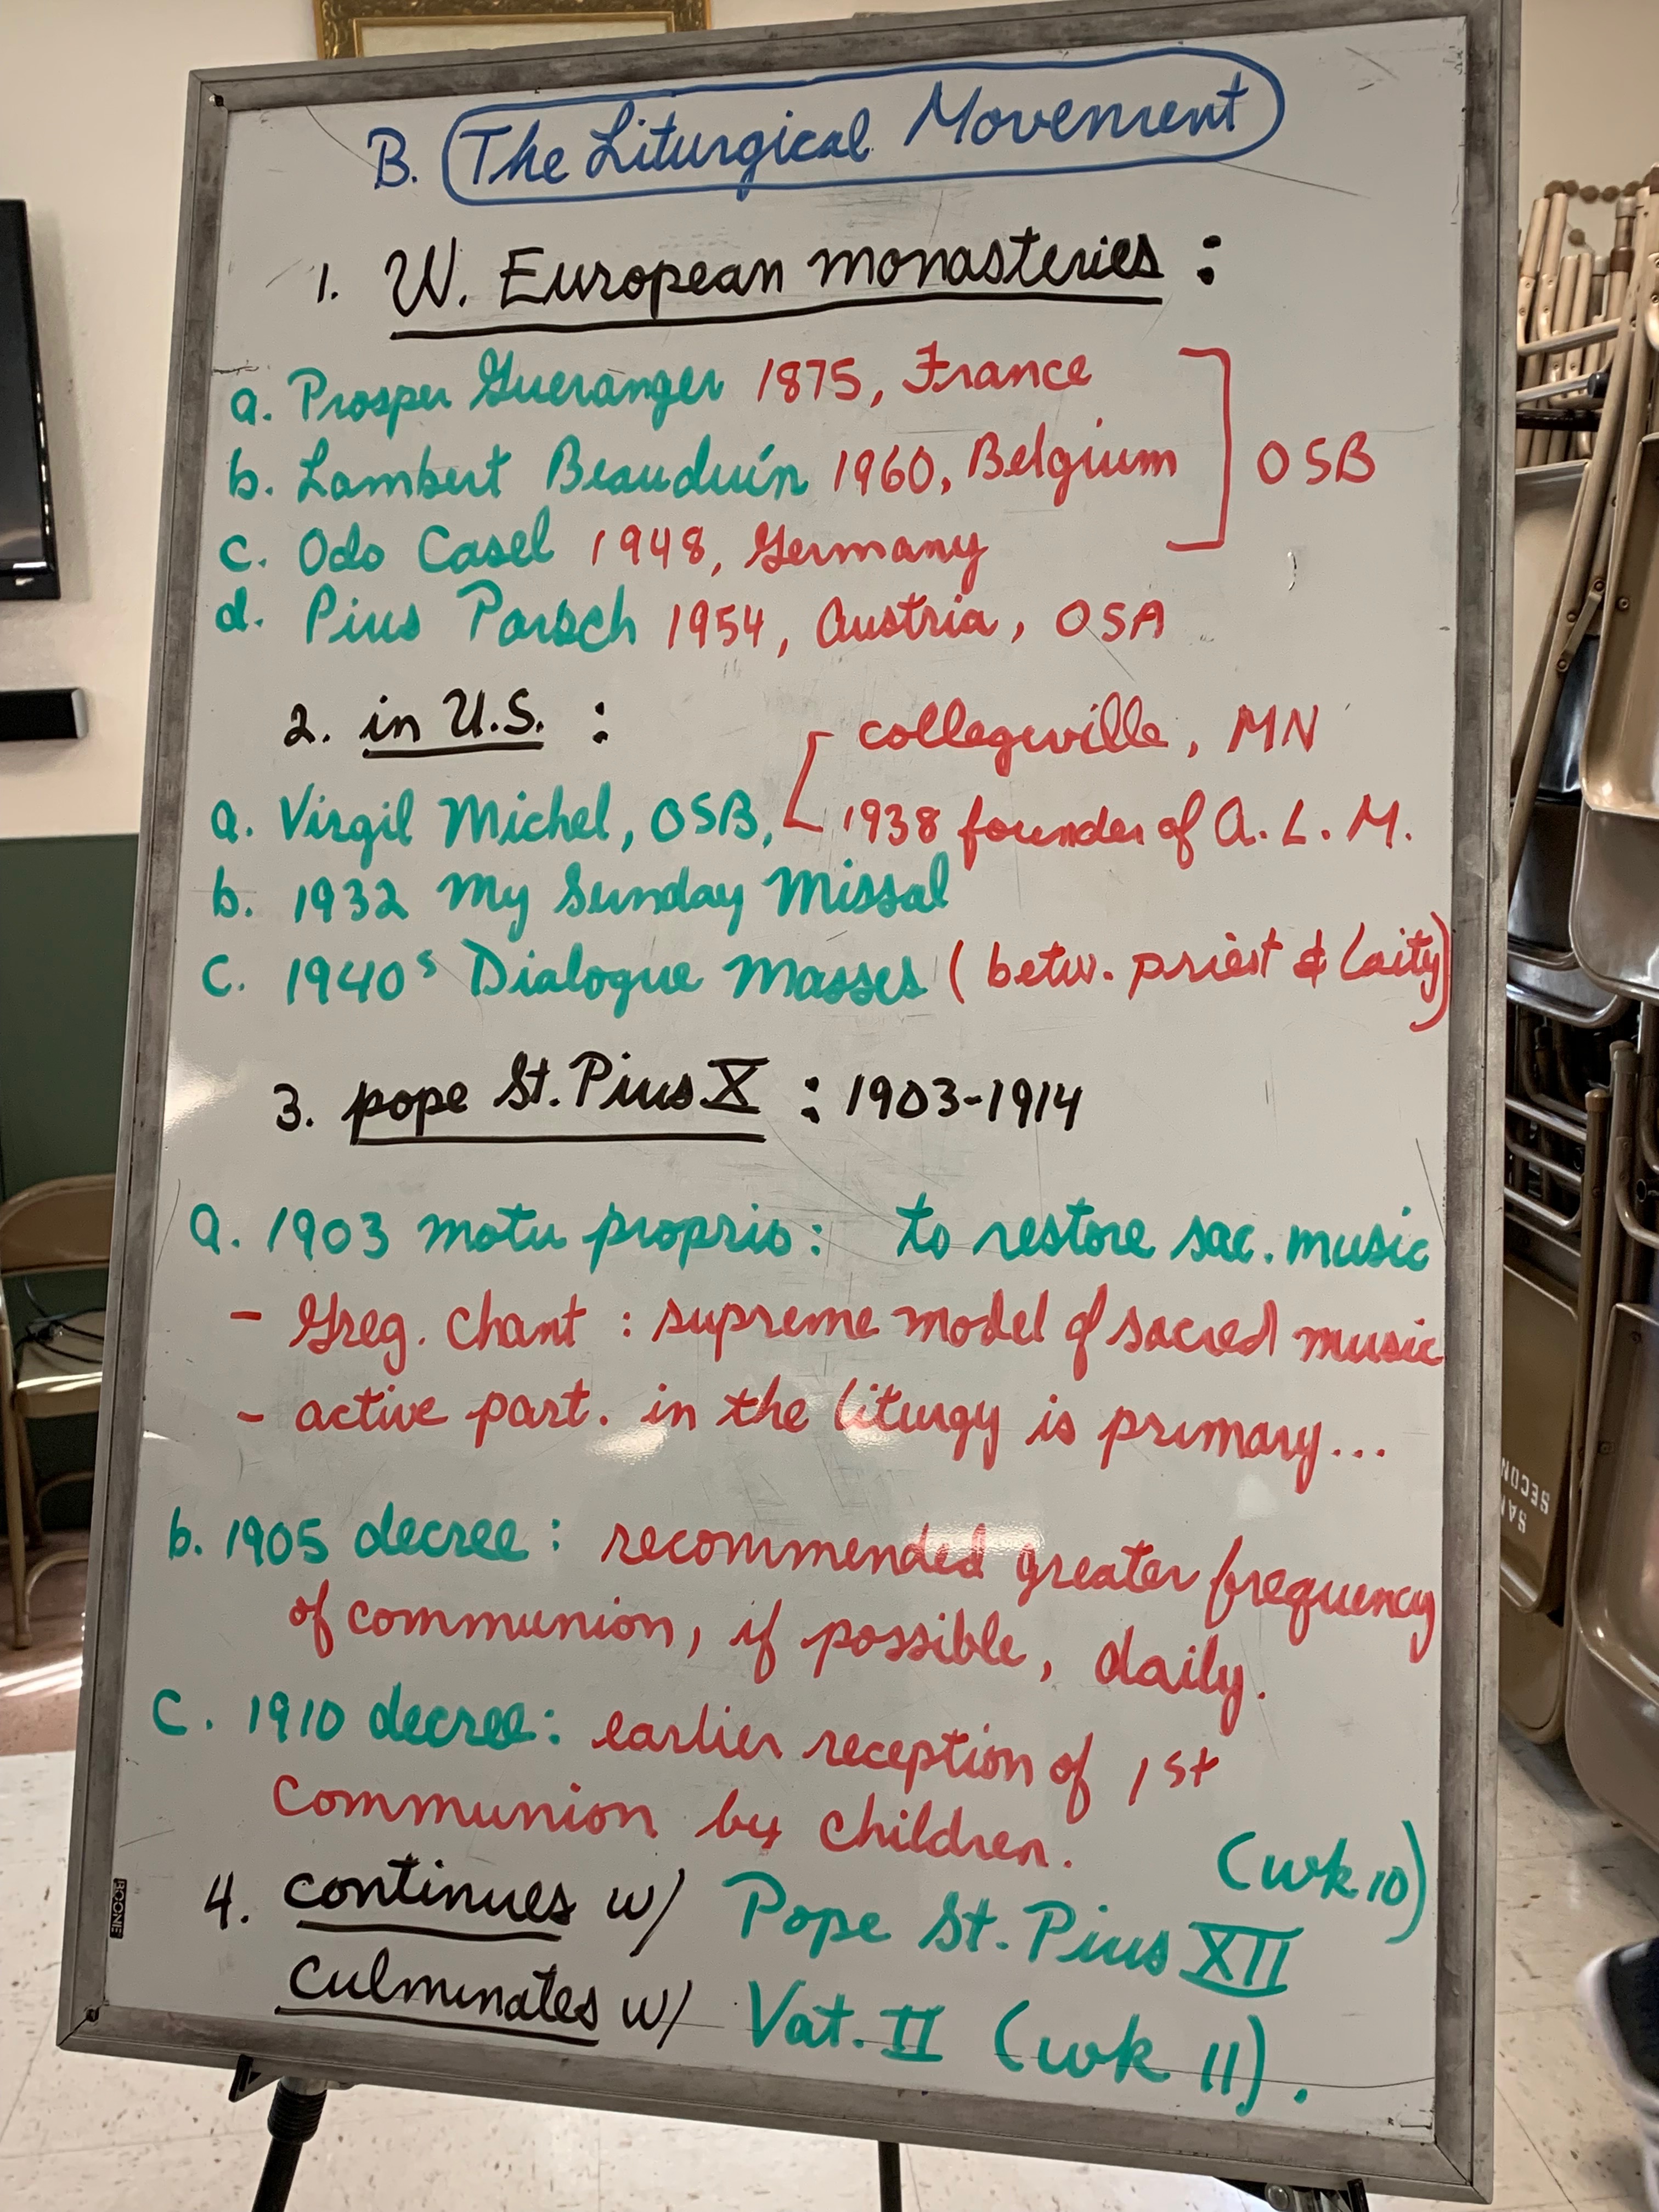 B. The Liturgical Movement
1. W. European monasteries :
a. Prosper Gueranger 1875, France
b. Lambert Beauduin 1960, Belgium
OSB
c. Odo Casel 1948, Germany
d. Pius Parsch 1954, Austria, OSA
2. in U.S. :
collegeville, MN
a. Virgil Michel, OSB, 1938 founder of A. L. M.
b. 1932 My Sunday Missal
c. 1940s Dialogue Masses (betw. priest & laity)
3. pope St. Pius X : 1903-1914
a. 1903 motu proprio: to restore sac. music
- Greg. Chant : supreme model of sacred music
- active part. in the liturgy is primary...
b. 1905 decree: recommended greater frequency
of communion, if possible, daily.
C. 1910 decree: earlier reception of 1st
Communion by children.
(wk 10)
4. continues w/ Pope St. Pius XII
culminates w/ Vat. II (wk 11).
BOONE
SAN
SECON